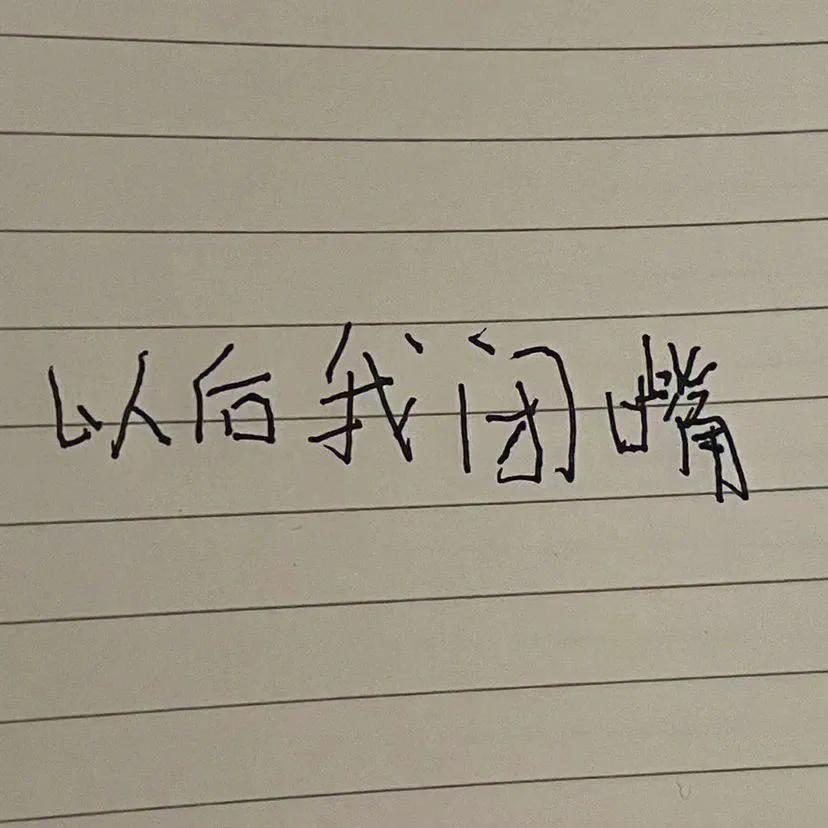 以后我闭嘴